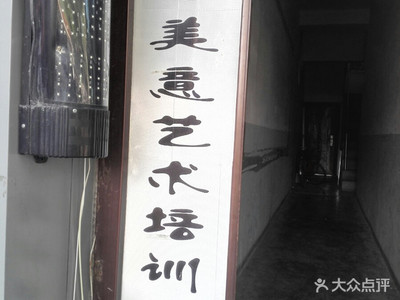 美意艺术培训
大众点评